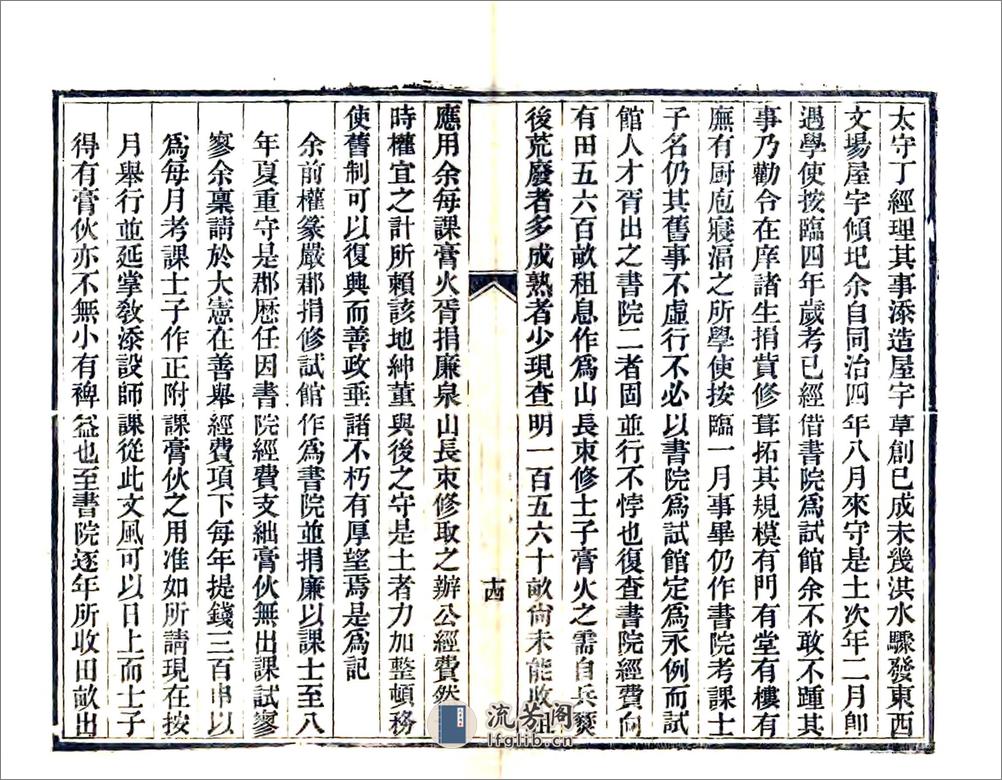 太守丁經理其事添造屋宇草創已成未幾洪水驟發東西
文場屋宇傾圮余自同治四年八月來守是土次年二月卽
遇學使按臨四年歲考已經借書院爲試館余不敢不踵其
事乃勸令在庠諸生捐貲修葺拓其規模有門有堂有樓有
廡有厨庖寢湢之所學使按臨一月事畢仍作書院考課士
子名仍其舊事不虛行不必以書院爲試館定爲永例而試
館人才胥出之書院二者固並行不悖也復查書院經費向
有田五六百畝租息作爲山長束修士子膏火之需自兵燹
後荒廢者多成熟者少現查明一百五六十畝尙未能收租
十四
應用余每課膏火胥捐廉泉山長束修取之辦公經費然
時權宜之計所賴該地紳董與後之守是土者力加整頓務
使舊制可以復興而善政垂諸不朽有厚望焉是爲記
余前權篆嚴郡捐修試館作爲書院並捐廉以課士至八
年夏重守是郡歷任因書院經費支絀膏伙無出課試寥
寥余稟請於大憲在善舉經費項下每年提錢三百串以
爲每月考課士子作正附課膏伙之用准如所請現在按
月舉行並延掌敎添設師課從此文風可以日上而士子
得有膏伙亦不無小有裨益也至書院逐年所收田畝出
流芳阁
lfglib.cn